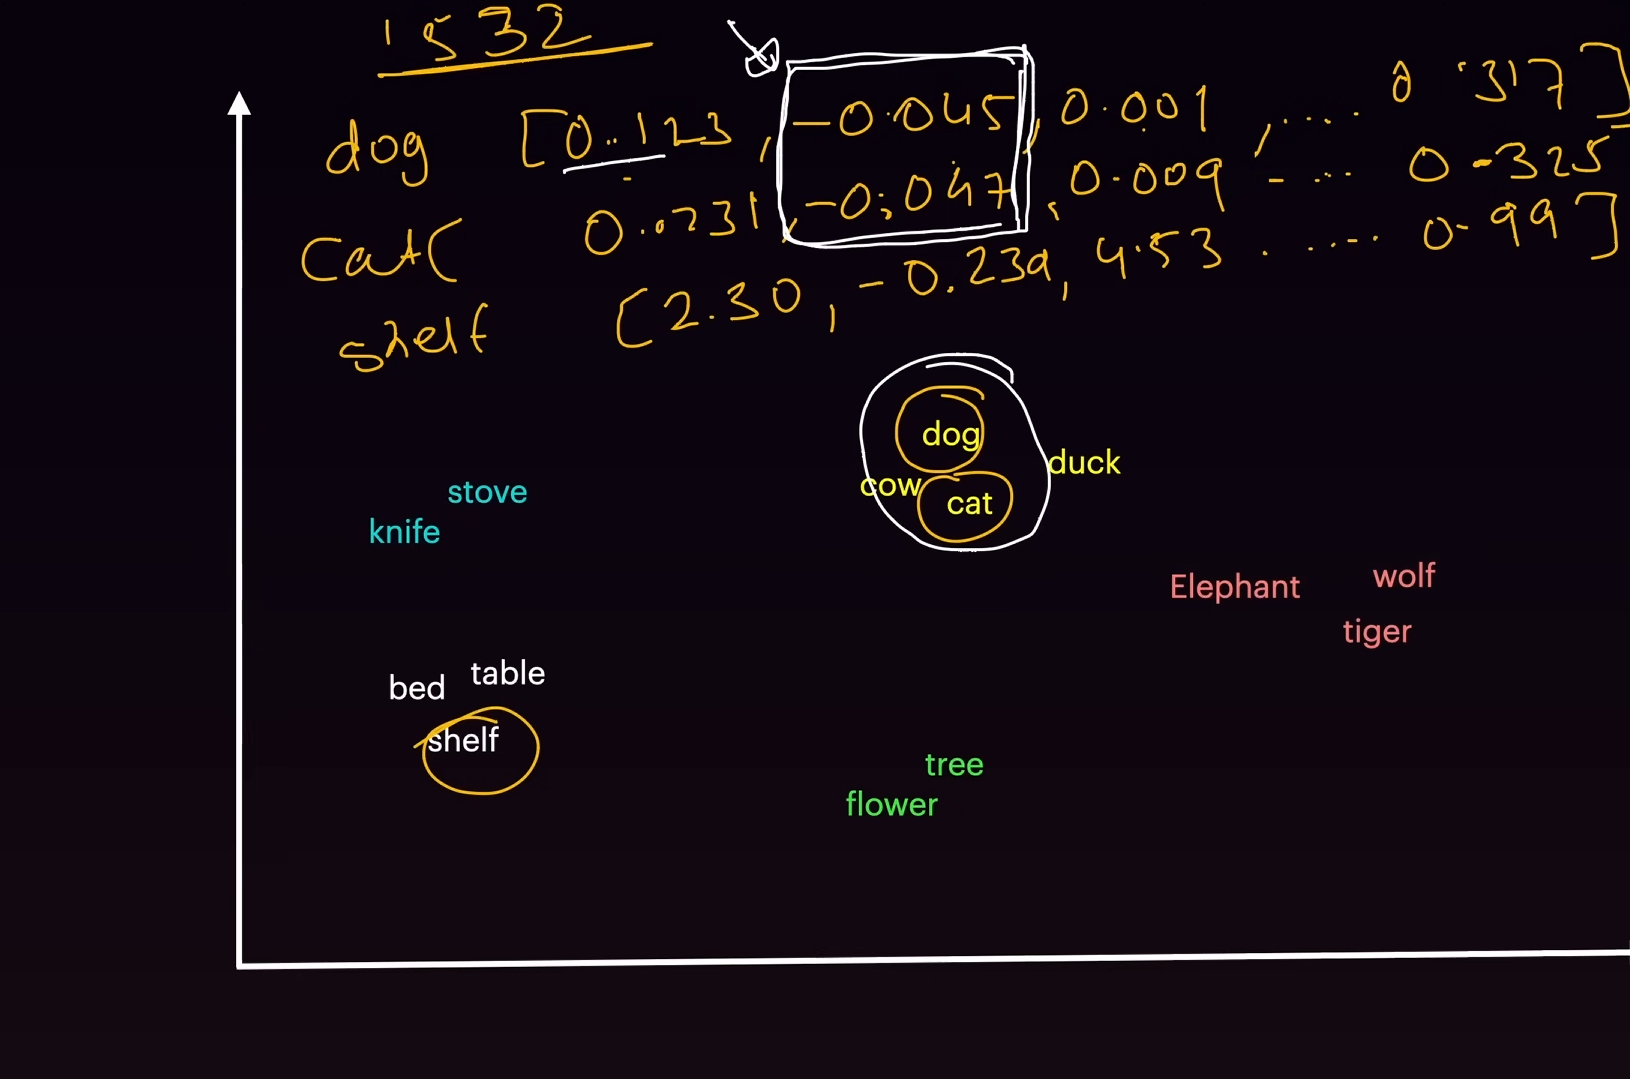 1532
dog [0.123, -0.045, 0.001, .... 0.317]
cat [0.0231, -0.047, 0.009 - ... 0.325
shelf [2.30, -0.239, 4.53 . .... 0.99]
dog
duck
cow
cat
stove
knife
Elephant
wolf
tiger
bed
table
shelf
tree
flower